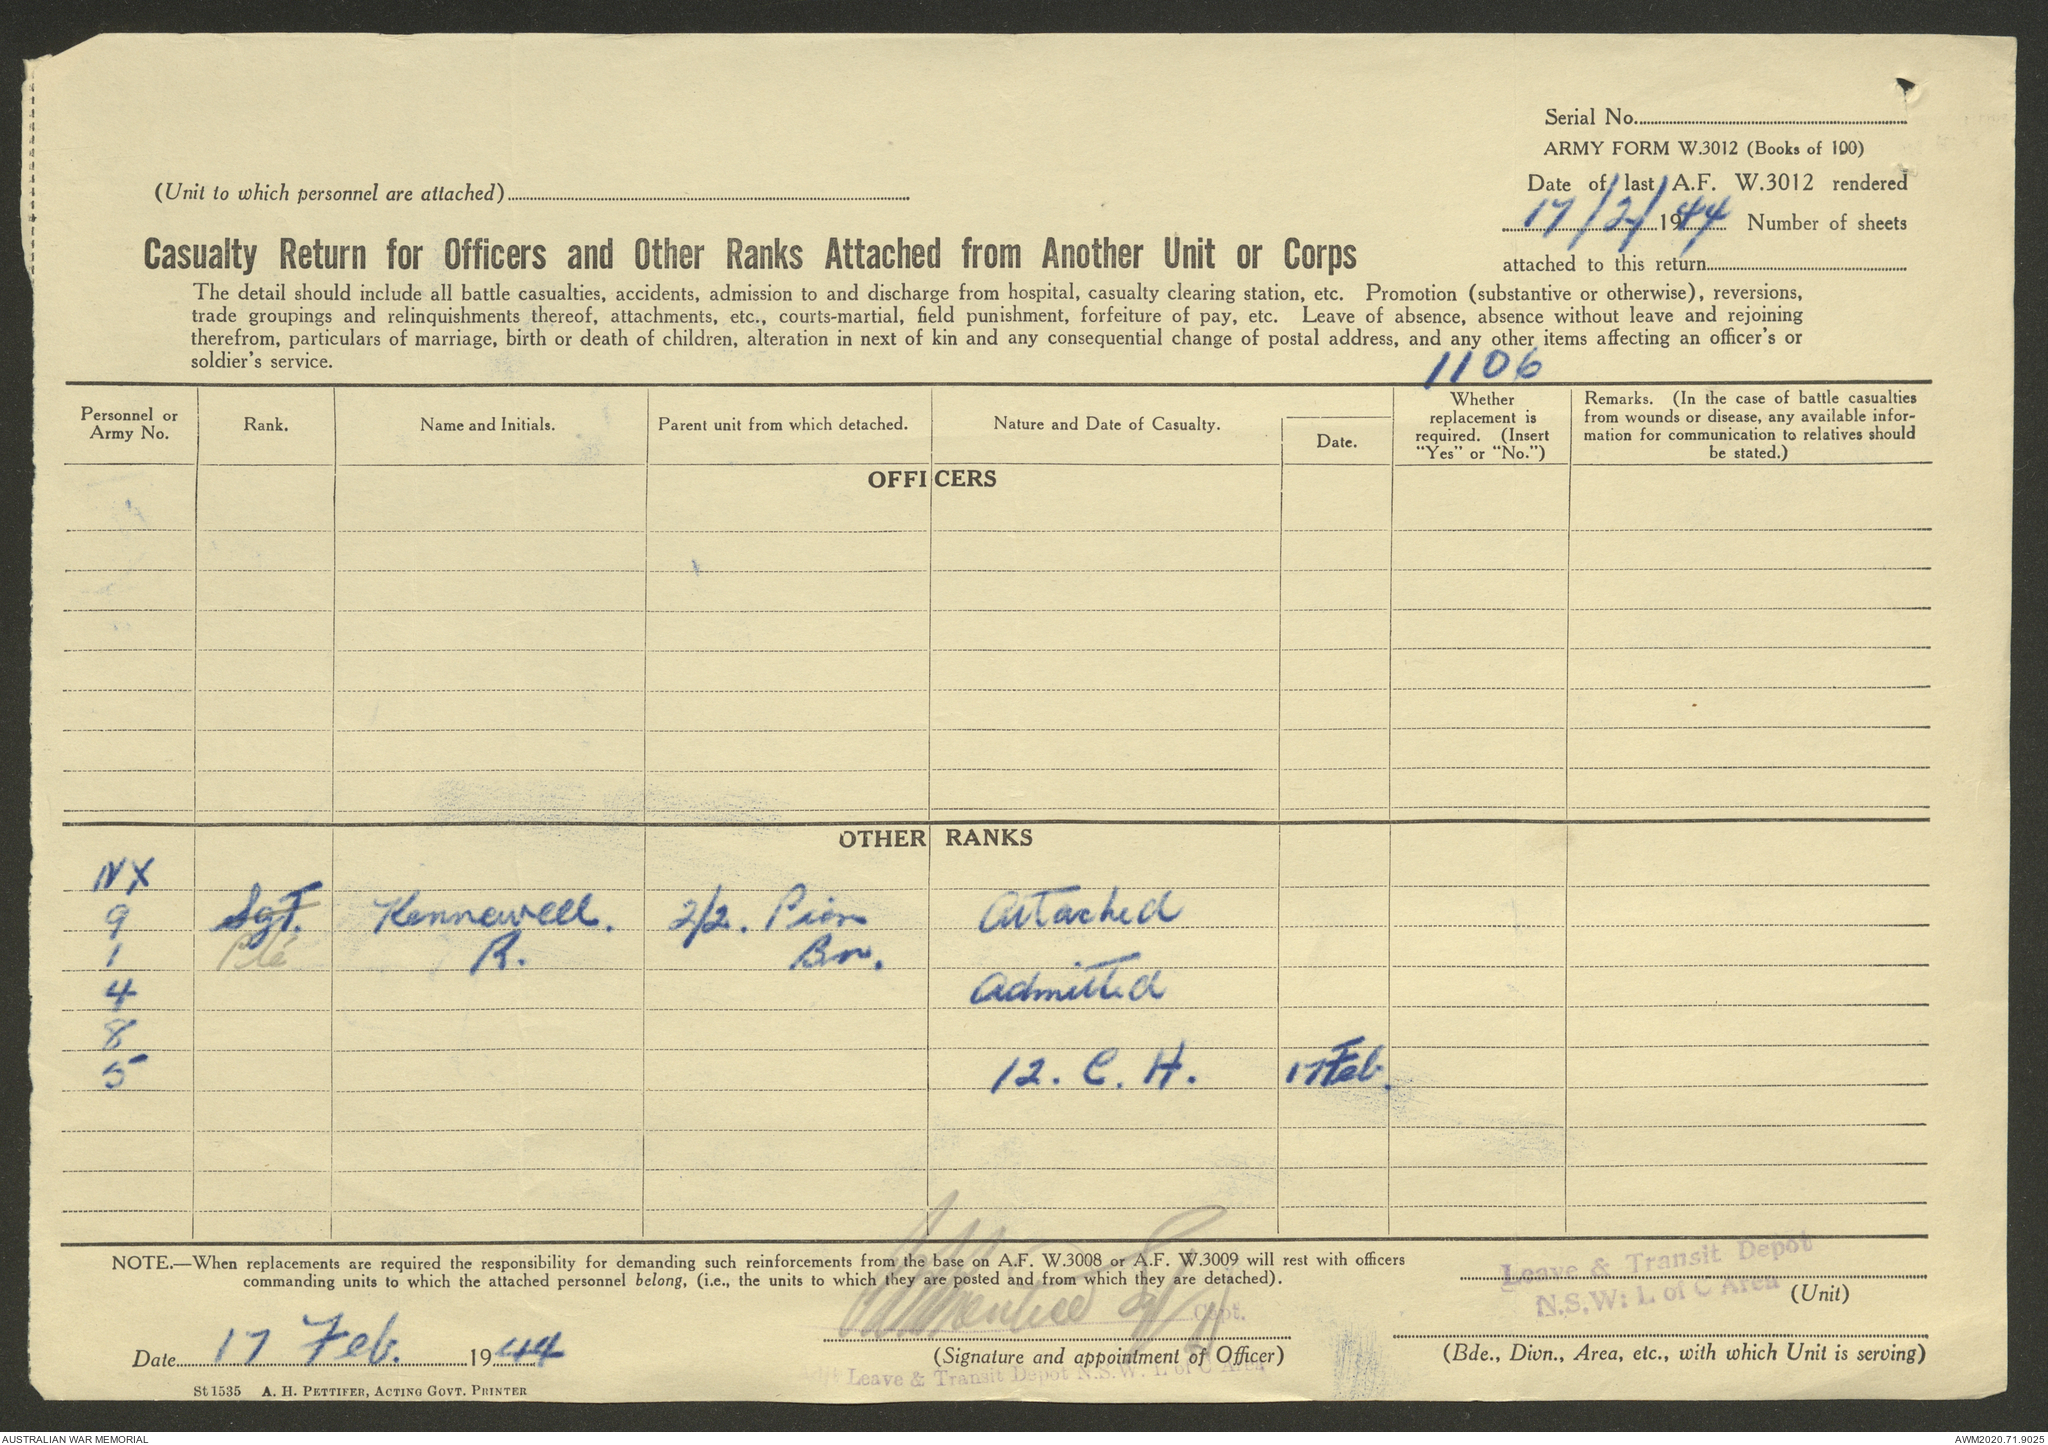 Serial No.
ARMY FORM W.3012 (Books of 100)
Date of last A.F. W.3012 rendered
17/2/1944 Number of sheets
attached to this return
(Unit to which personnel are attached)
Casualty Return for Officers and Other Ranks Attached from Another Unit or Corps
The detail should include all battle casualties, accidents, admission to and discharge from hospital, casualty clearing station, etc. Promotion (substantive or otherwise), reversions,
trade groupings and relinquishments thereof, attachments, etc., courts-martial, field punishment, forfeiture of pay, etc. Leave of absence, absence without leave and rejoining
therefrom, particulars of marriage, birth or death of children, alteration in next of kin and any consequential change of postal address, and any other items affecting an officer's or
soldier's service.
1106
Personnel or
Army No.
Rank.
Name and Initials.
Parent unit from which detached.
Nature and Date of Casualty.
Date.
Whether
replacement is
required. (Insert
"Yes" or "No.")
Remarks. (In the case of battle casualties
from wounds or disease, any available infor-
mation for communication to relatives should
be stated.)
OFFICERS
OTHER RANKS
NX
9 Sgt. Kennewell. 2/2. Pion Attached
1 Pte R. Bn.
4 Admitted
8
5 12. C. H. 17 Feb.
NOTE.—When replacements are required the responsibility for demanding such reinforcements from the base on A.F. W.3008 or A.F. W.3009 will rest with officers
commanding units to which the attached personnel belong, (i.e., the units to which they are posted and from which they are detached).
Leave & Transit Depot
N.S.W: L of C Area
(Unit)
Capt.
Date 17 Feb. 1944
(Signature and appointment of Officer)
(Bde., Divn., Area, etc., with which Unit is serving)
Leave & Transit Depot N.S.W: L of C Area
St 1535 A. H. PETTIFER, ACTING GOVT. PRINTER
AUSTRALIAN WAR MEMORIAL
AWM2020.71.9025